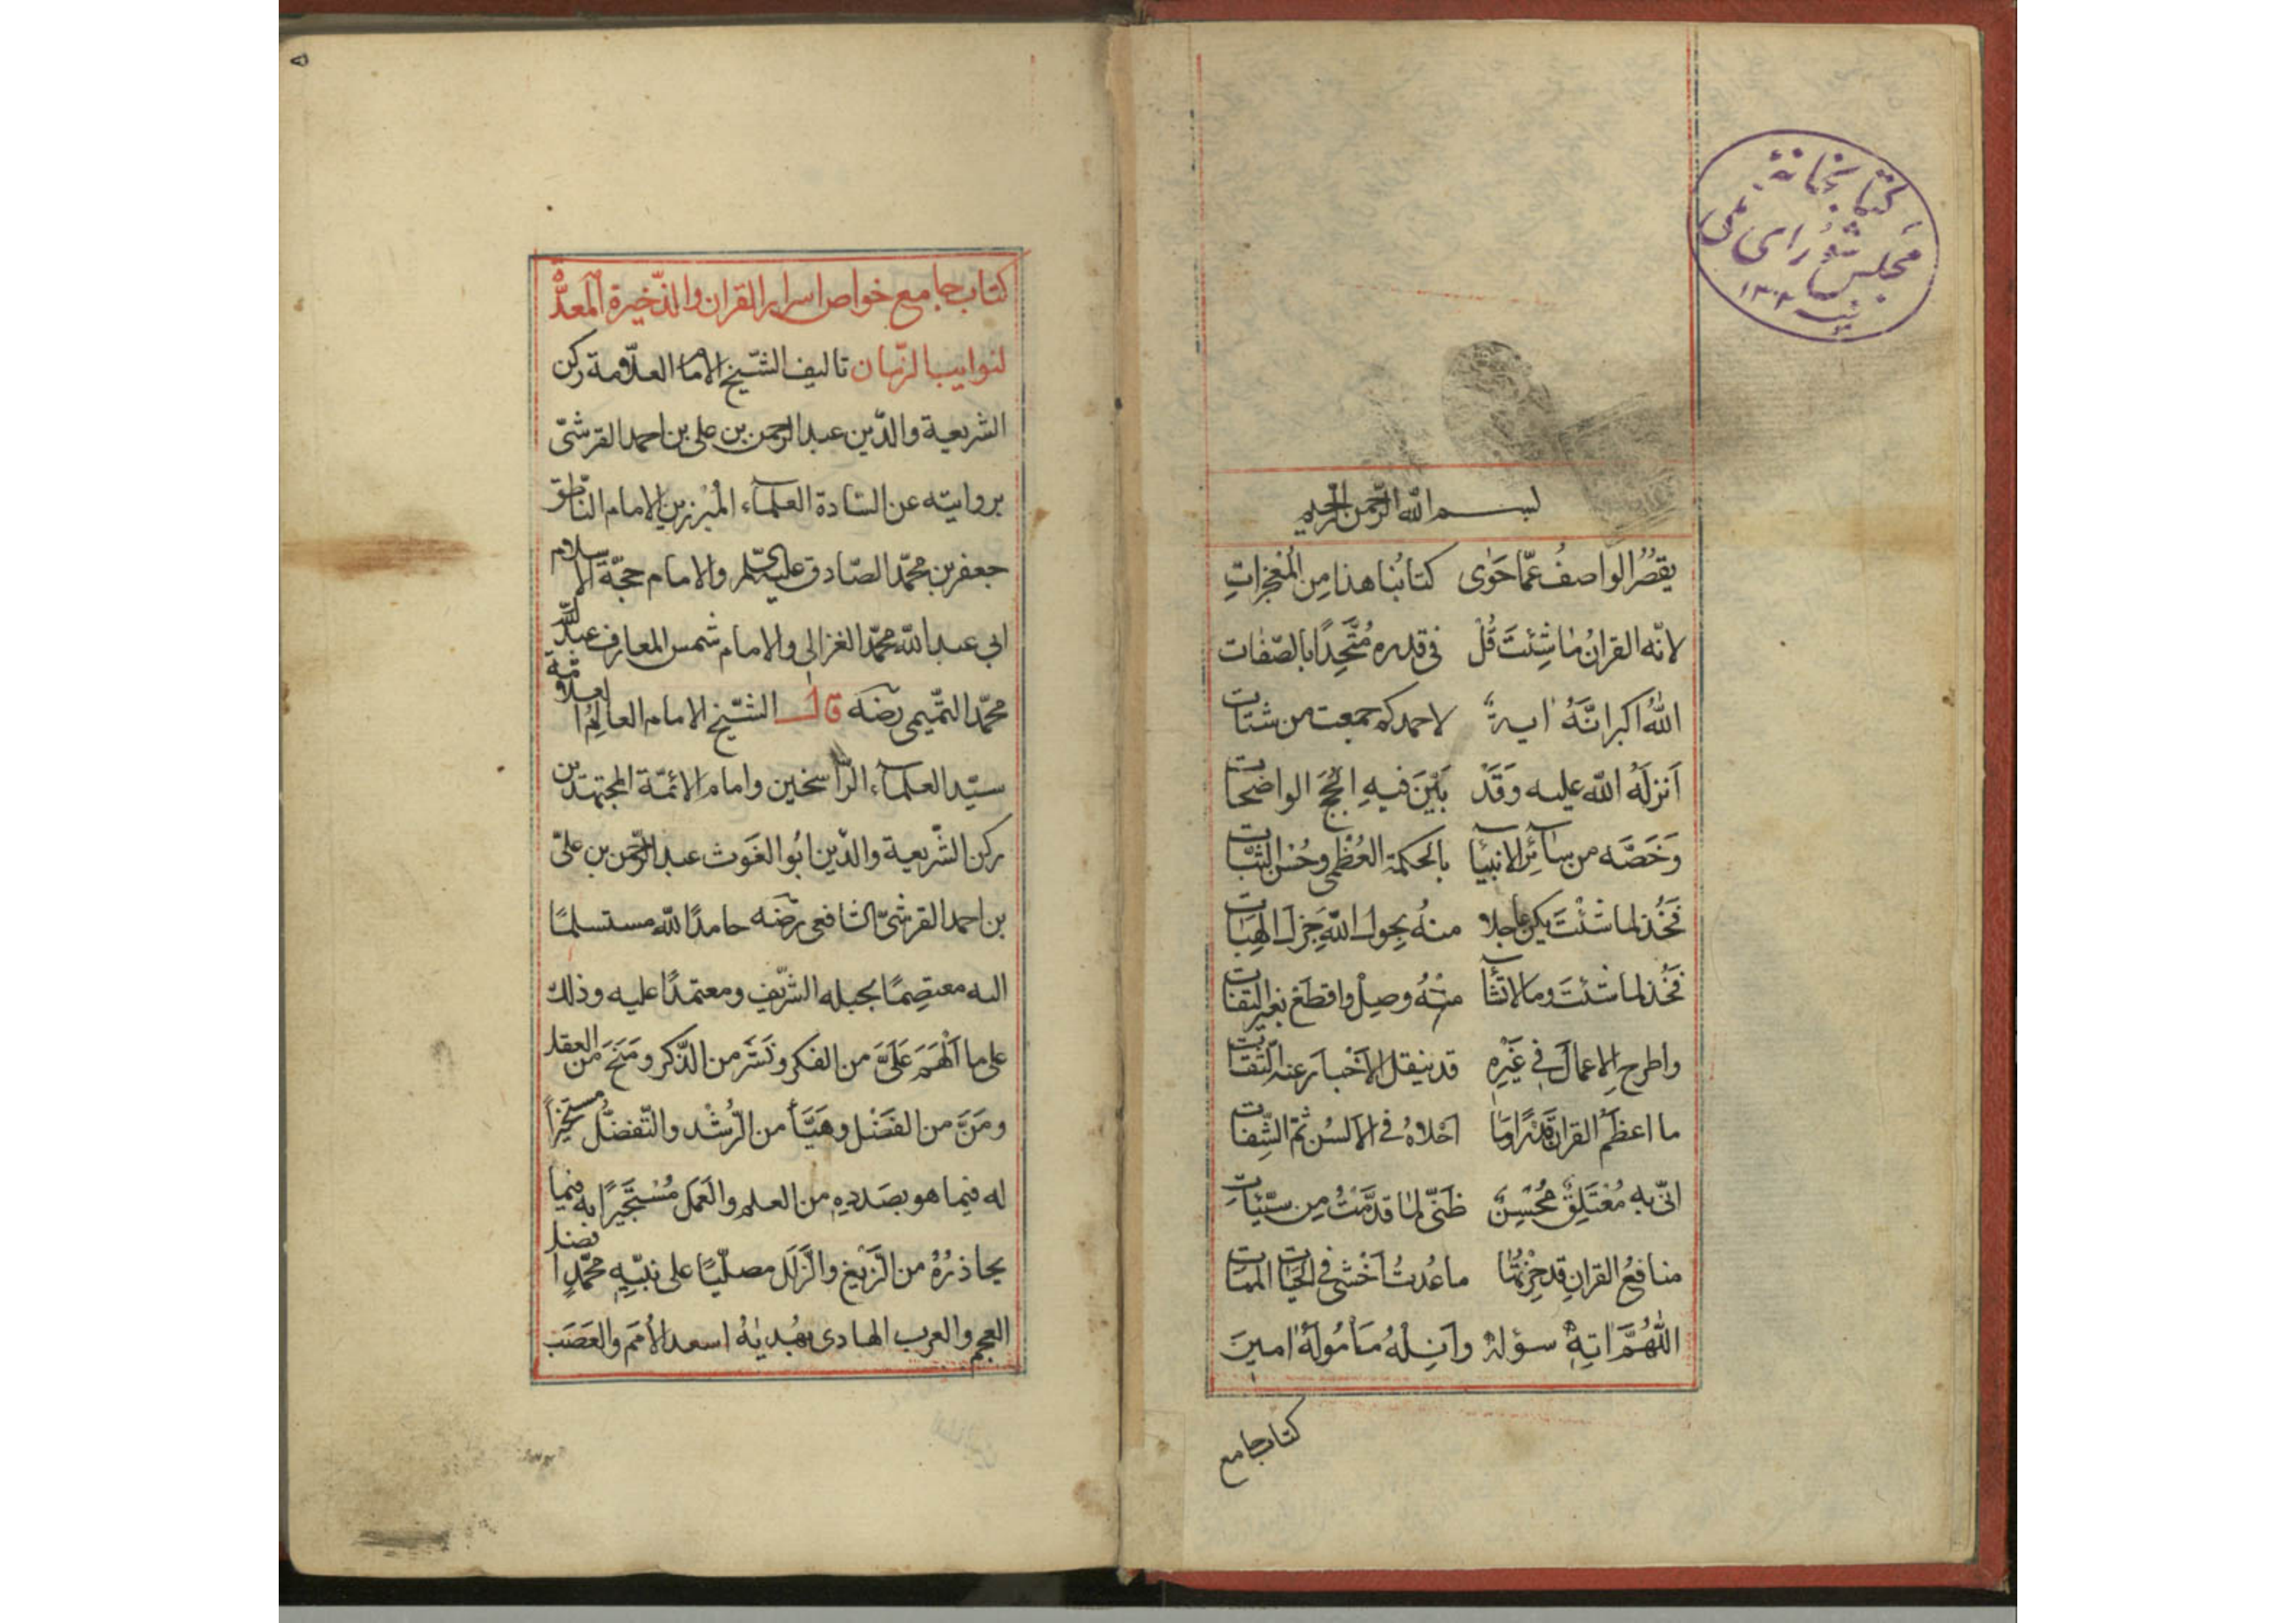 كتابخانۀ
مجلس شورای ملی
١٣٠٢
بسم الله الرحمن الرحيم
يقصُرُ الواصفُ عمّا حَوٰى كتابُنا هذا مِن المُعْجِزاتِ
لانّه القرانُ مٰا شِئتَ قُلْ فى قدره مُتَّحِدًا بالصّفٰات
اللهُ اكبر انَّهُ اية لاحمد كم جمعت من شتات
اَنزلَهُ اللّه عليه وَقَدْ بَيَّنَ فيهِ الحُجَجَ الواضحات
وَخَصَّه من سٰائِر الانبيٰا بالحكمة العُظْمى وحُسْن الثَّبٰات
فَخُذ لما شئْتَ يكن عاجلا منهُ بحول اللّه جَزلَ الهِبٰات
فَخُذ لما شئتَ وما لا تشٰا منهُ وصِلْ واقطَعْ بغير التفات
واطرح الاعمالَ فى غَيْرِه قد ينقل الاَخْبارَ عنه الثّقات
ما اعظَمَ القرانَ قَدْرًا وما احْلاهُ فى الاَلسُن ثم الشِّفات
انّى به مُعْتَلِقٌ مُحْسِنٌ ظَنّى لمٰا قدَّمْتُ مِن سيّئٰات
منافعُ القرانِ قد حزتُها ما عُدتُ اَخْشٰى فى الحَيٰات الممات
اللّهُمَّ اتِهِ سؤلهُ وانِلهُ مَأمُولَهُ امينَ
كتاب جامع
كتاب جامع خواص اسرار القران والذّخيرة المعدّة
لنوايب الزّمان تاليف الشّيخ الامام العلّامة ركن
الشريعة والدّين عبد الرحمن بن على بن احمد القرشىّ
بروايته عن السّادة العلماء المُبْرزين الامام النّاطق
جعفر بن محمّد الصّادق عليه السّلم والامام حجّة الاسلام
ابى عبد اللّه محمّد الغزالى والامام شمس المعارف عبد اللّه
محمّد التّميمى رضه قال الشّيخ الامام العالِمُ العلّامة
سيّد العلماء الرّاسخين وامام الائمّة المجتهدين
ركن الشّريعة والدّين ابُو الغَوث عبد الرّحمن بن علىّ
بن احمد القرشىّ الشافعى رضه حامدًا للّه مستسلمًا
اليه معتصِمًا بحبله الشّريف ومعتمدًا عليه وذلك
على ما اَلْهَمَ عَلَىَّ من الفكر ونَشَرَ من الذّكر ومَنَحَ من العقل
ومَنَّ من الفَضْل وهَيَّأ من الرُّشْد والتّفضّل مستخيرًا
له فيما هو بصَددِهِ من العلم والعَمَل مُسْتَجيرًا به فيما
يحاذرُهُ من الزّيْغ والزَّلَل مصلّيًا على نبيّهِ محمّدٍ افضل
العجم والعرب الهادى بهُديٰهُ اسعد الاُمَم والعَصَب